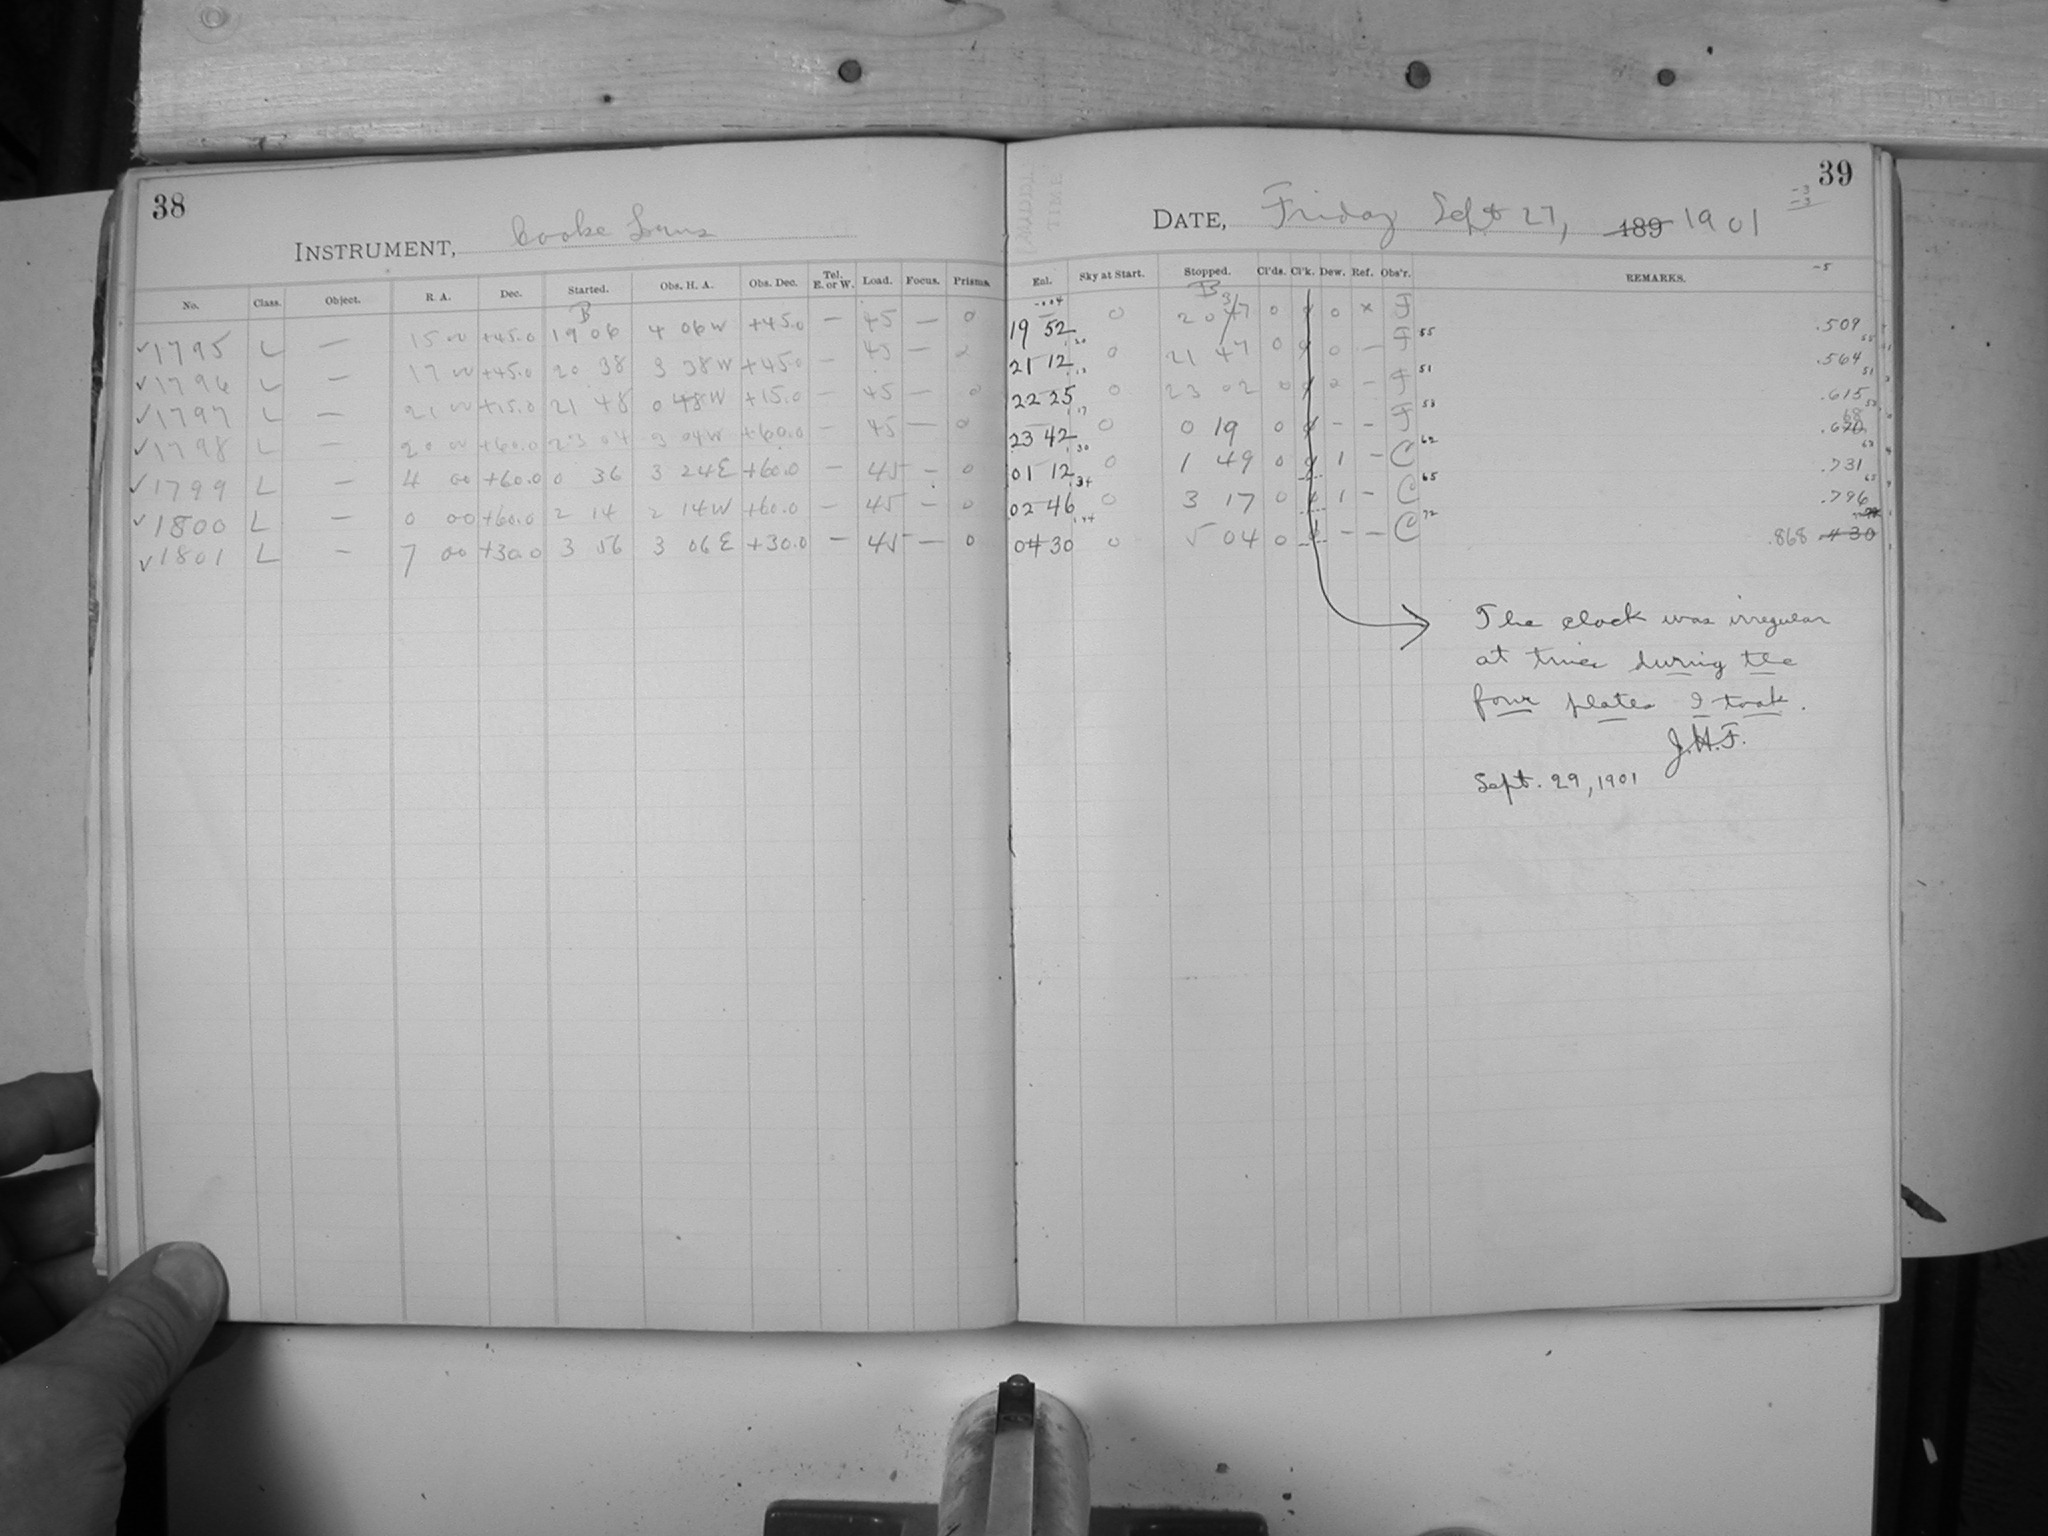 38
INSTRUMENT, Cooke Lens
No. Class. Object. R. A. Dec. Started. Obs. H. A. Obs. Dec. Tel. E. or W. Load. Focus. Prisms.
B
✓1795 L — 15 00 +45.0 19 06 4 06W +45.0 — 45 — 0
✓1796 L — 17 00 +45.0 20 38 3 38W +45.0 — 45 — 0
✓1797 L — 21 00 +15.0 21 48 0 48W +15.0 — 45 — 0
✓1798 L — 20 00 +60.0 23 04 3 04W +60.0 — 45 — 0
✓1799 L — 4 00 +60.0 0 36 3 24E +60.0 — 45 — 0
✓1800 L — 0 00 +60.0 2 14 2 14W +60.0 — 45 — 0
✓1801 L — 7 00 +30.0 3 56 3 06E +30.0 — 45 — 0
39
DATE, Friday Sept 27, 189 1901
Enl. Sky at Start. Stopped. Cl'ds. Cl'k. Dew. Ref. Obs'r. REMARKS.
B
19 52 0 20 37 0 0 × F .509
21 12 0 21 47 0 0 — F 55 .564
22 25 0 23 02 0 0 — F 51 .615
23 42 0 0 19 0 — — F 53 .670 68
01 12 0 1 49 0 1 — C 62 .731
02 46 0 3 17 0 1 — C 65 .796
04 30 0 5 04 0 — — C 72 .868 .430
The clock was irregular
at times during the
four plates I took.
J.H.F.
Sept. 29, 1901